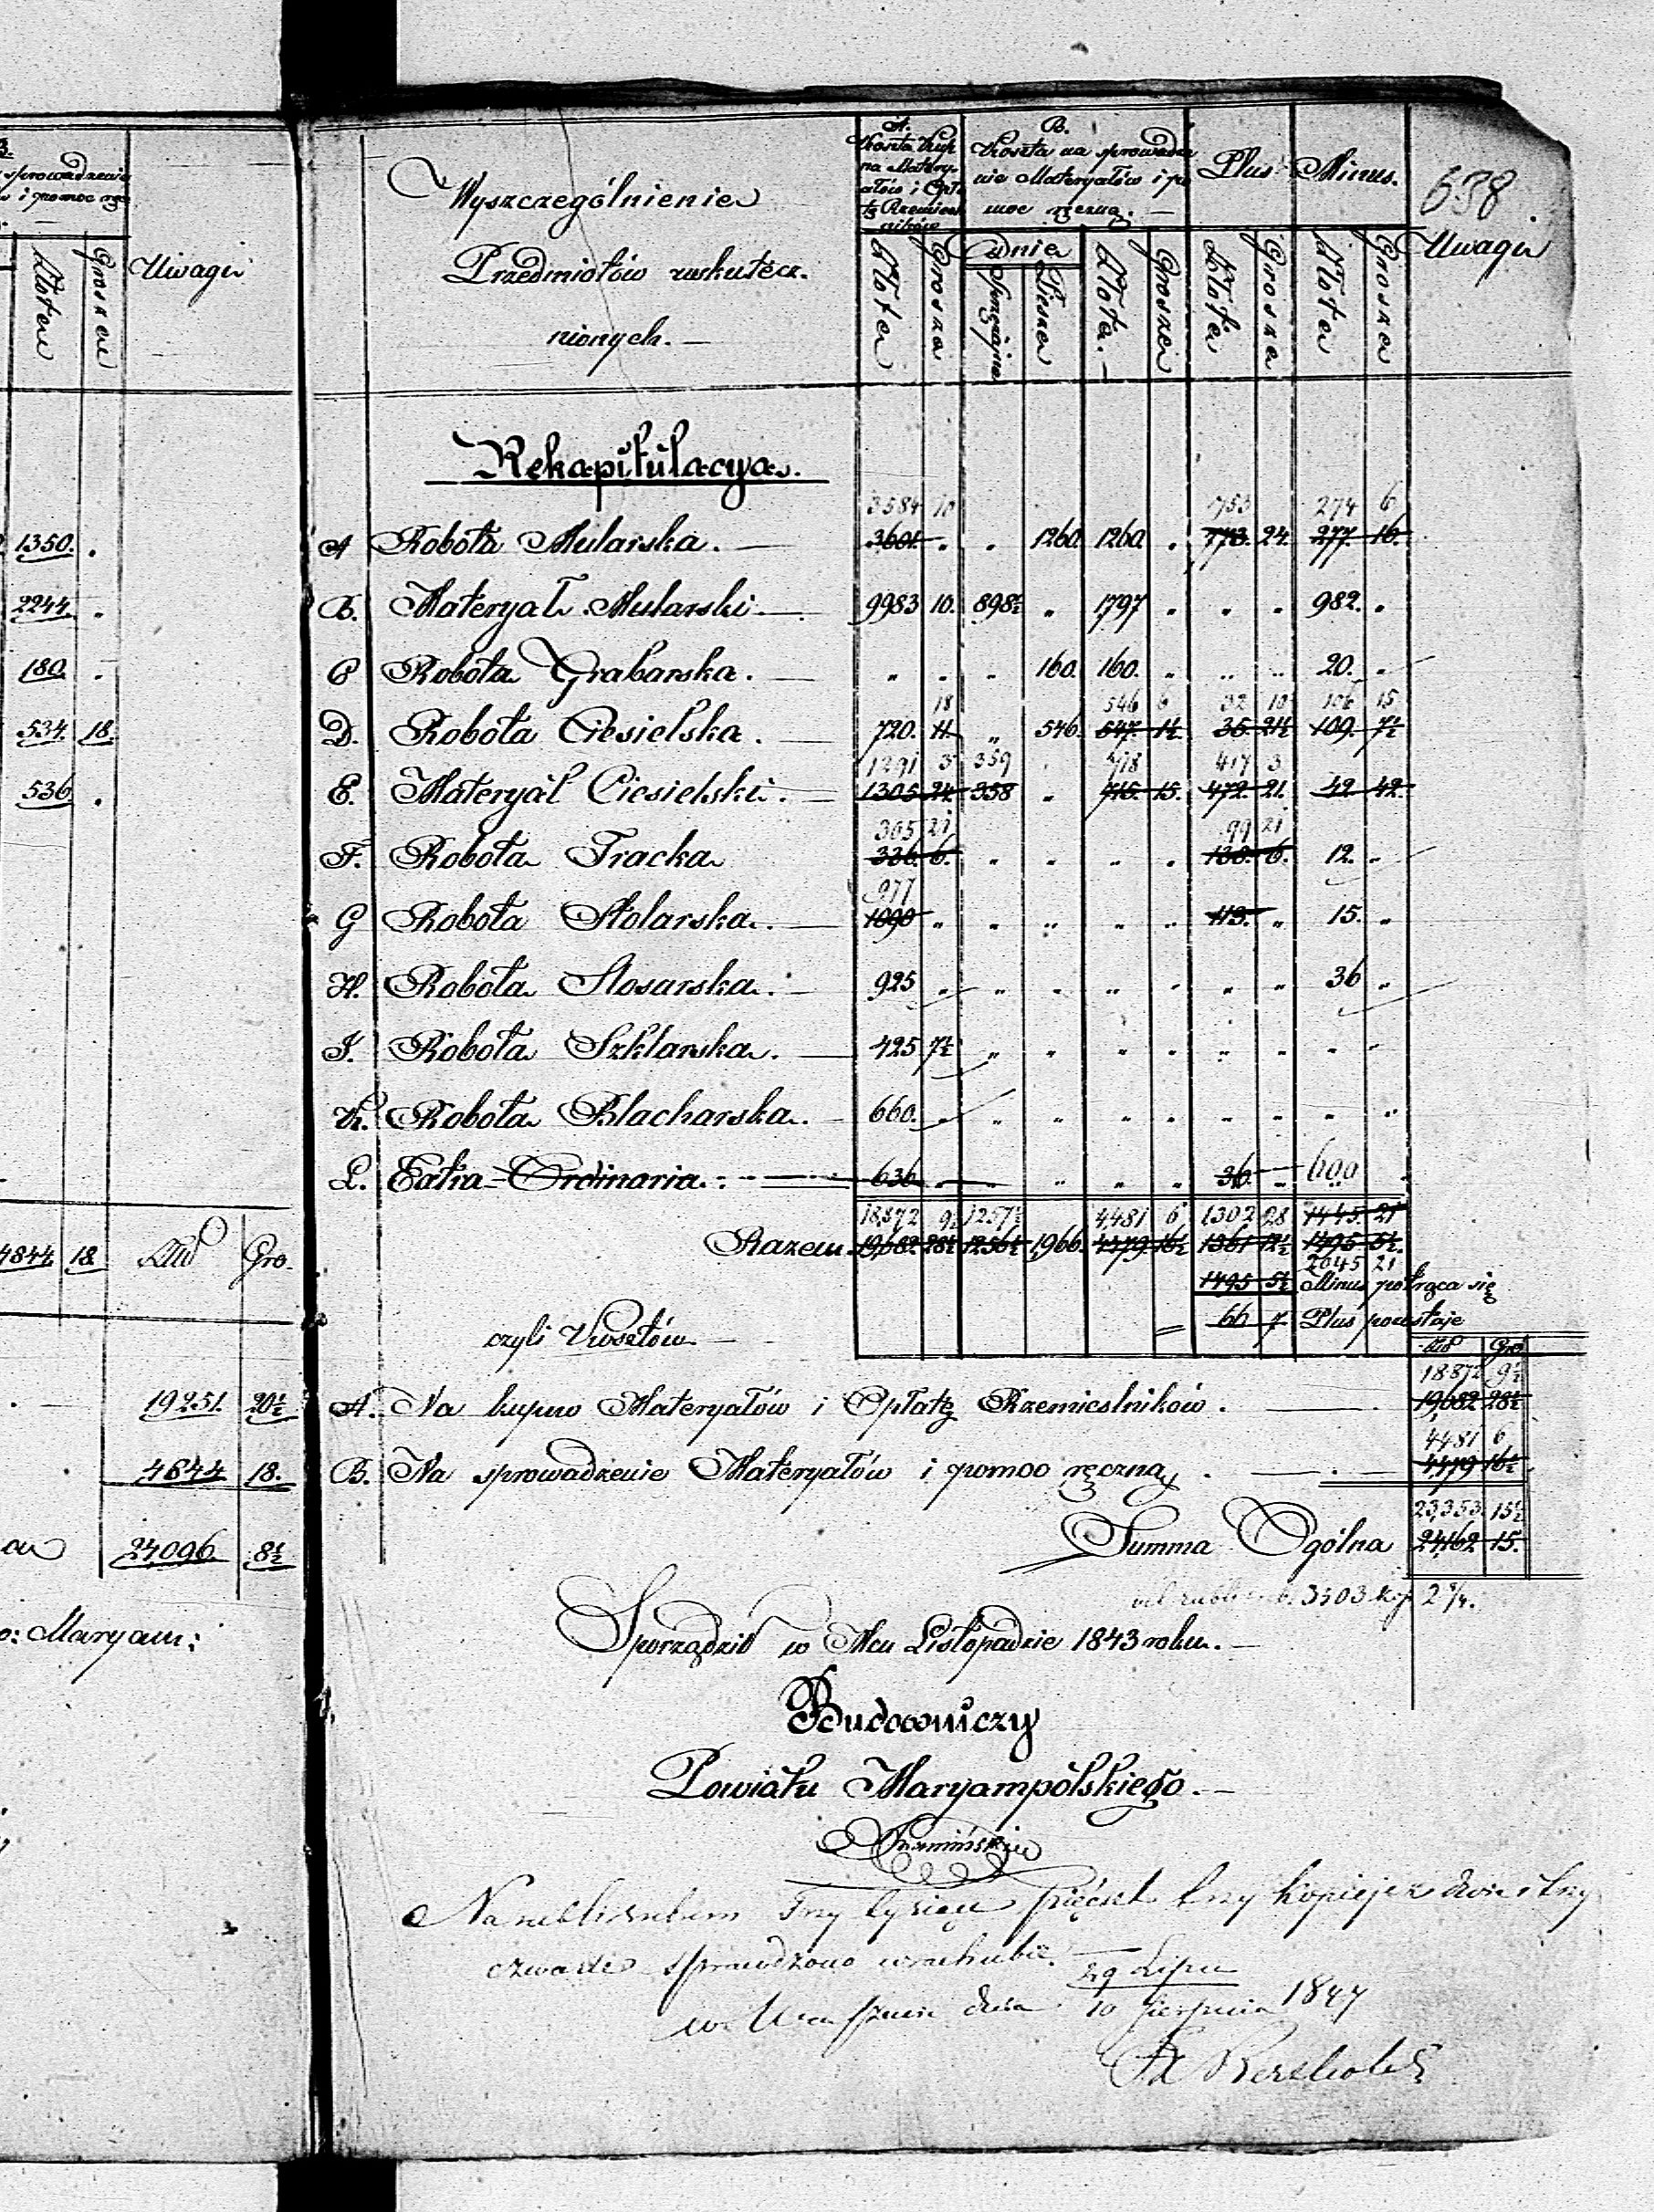 B.
sprowadzenie
i pomoc ręcz
Złote Grosze Uwagi
1350. "
2244. "
180. "
534. 18.
536. "
4844 18. Złł Gro.
19251. 20½
4644 18.
24,096. 8½
o: Maryam:
638.
Wyszczególnienie
Przedmiotów uskutecz.
nionych. —
A.
Koszta kup
na Matery-
ałów i Opła
tę Rzemieśl
ników
B.
Koszta na sprowadze
nie Materyałów i po
moc ręczną. —
Plus Minus. Uwagi
Złote Grosze Dnie Sprzężajne Piesze Złote. Grosze Złote Grosze Złote Grosze
Rekapitulacya.
3584 10 753 274 6
A Robota Mularska. — 3601. " " 1260. 1260. " 773. 24. 277. 16.
B. Materyał Mularski — 9983 10. 898½ " 1797 " " " 982. "
C Robota Grabarska. — " " " 160. 160. " " " 20. "
18 546 6 32 10 106 15
D. Robota Ciesielska. — 720. 11 " 546. 547. 1½ 35. 21½ 109. 7½
1291 3 359 718 417 3
E. Materyał Ciesielski. — 1305 24 358 " 715. 15. 472. 21. 42 42.
305 21 99 21
F. Robota Tracka 336. 6. " " " " 130. 6. 12. "
977
G Robota Stolarska. — 1090 " " " " " 113. " 15. "
H. Robota Slosarska. — 925 " " " " " " " 36 "
I. Robota Szklarska. — 425 7½ " " " " " " " "
K. Robota Blacharska. — 660. " " " " " " " " "
L. Extra-Ordinaria. — 636 " " " " " 36. " 600
18,872 9½ 1257½ 4,481 6 1302 28 1445. 21
Razem 19,682. 28½ 1256½ 1,966. 4479 16½ 1361 12½ 1495. 5½.
2045 21
1495 5½ Minus potrąca się
66 7 Plus pozostaje
czyli Kosztów — Złł Gro
18872 9½
A. Na kupno Materyałów i Opłatę Rzemieslników. — 19,682 28½
4481 6
B. Na sprowadzenie Materyałów i pomoc ręczną. — 4,479 16½
23,353 15½
Summa Ogólna 24,162 15.
3503 kop 2 ¾.
Sporządził w Mcu Listopadzie 1843 roku. —
Budowniczy
Powiatu Maryampolskiego. —
Na rubli srebrem Trzy tysiące pięćset trzy kopiejek dwie i trzy
czwarte sprawdzono w rachubie.
29 Lipca
dnia 10 Sierpnia 1847